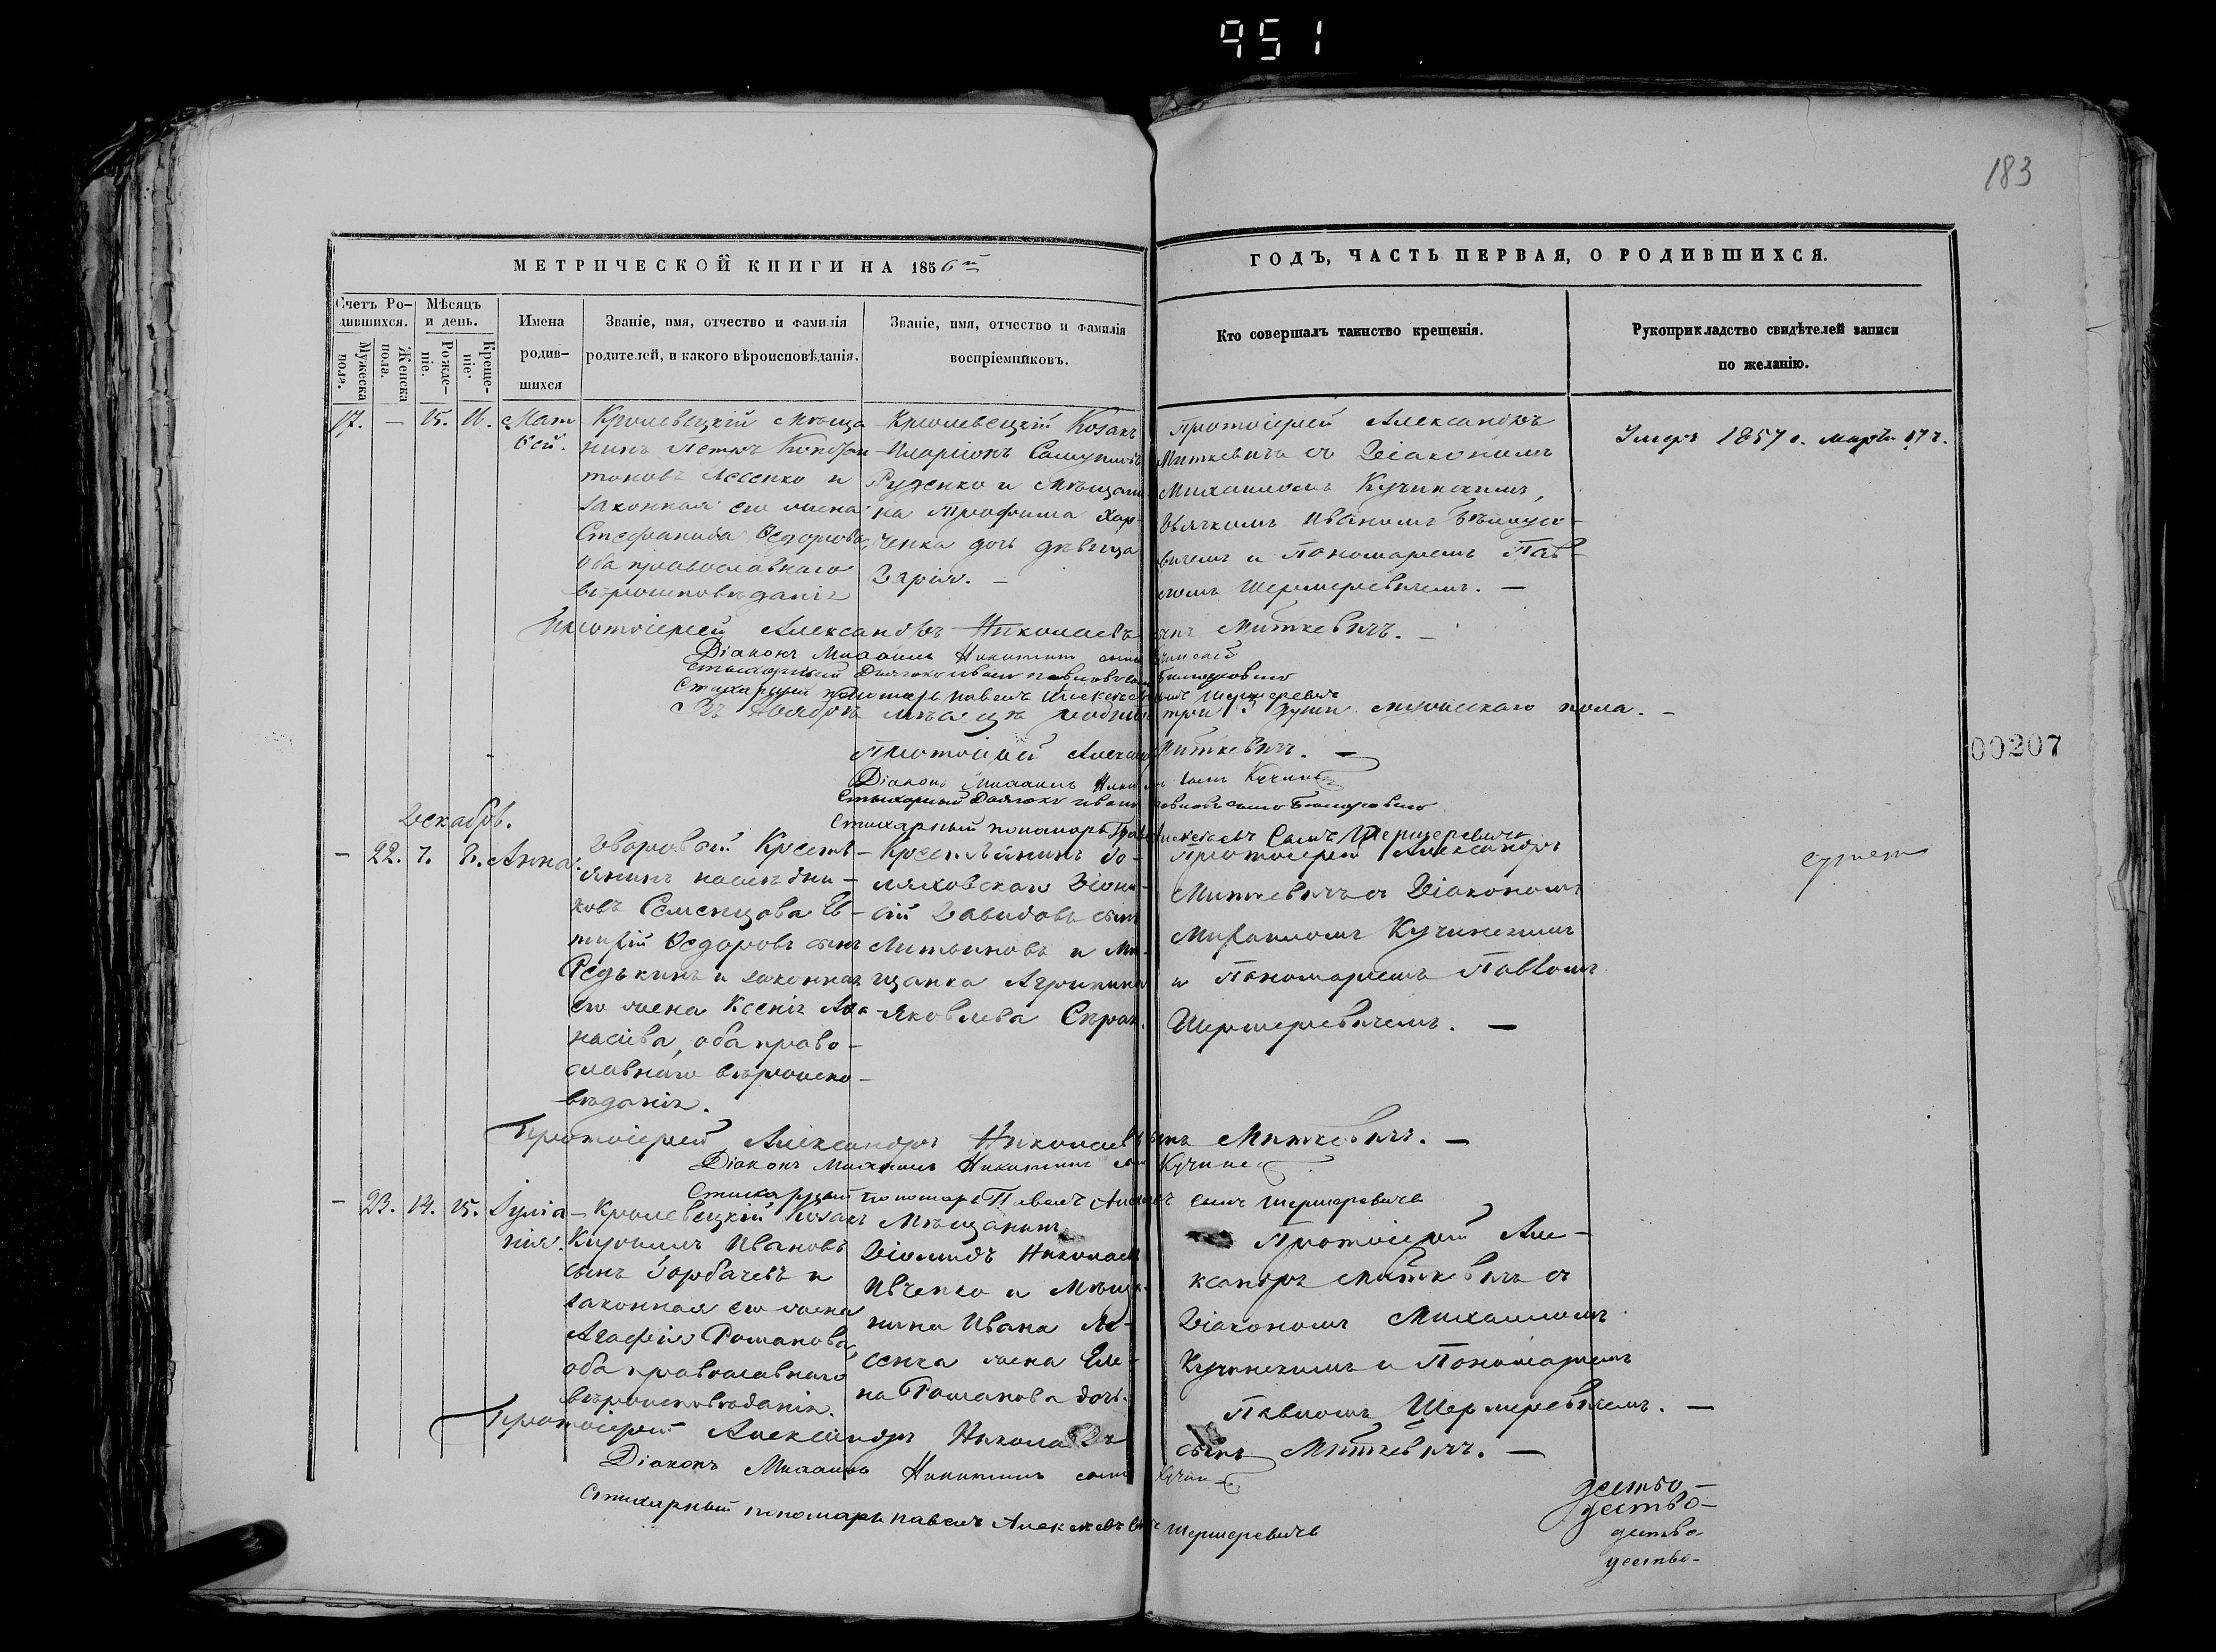 951
183
МЕТРИЧЕСКОЙ КНИГИ НА 1856й
ГОДЪ, ЧАСТЬ ПЕРВАЯ, О РОДИВШИХСЯ.
Счетъ Ро-
дившихся.
Мужеска
пола.
Женска
пола.
Мѣсяцъ
и день.
Рожде-
ніе.
Креще-
ніе.
Имена
родив-
шихся
Званіе, имя, отчество и фамилія
родителей, и какого вѣроисповѣданія.
Званіе, имя, отчество и фамилія
воспріемниковъ.
Кто совершалъ таинство крещенія.
Рукоприкладство свидѣтелей записи
по желанію.
17. — 15. 16.
Мат
ѳей.
Кролевецкій Мѣща
нинъ Петръ Кондра
товъ Лесенко и
законная его жена
Стефанида Ѳедорова,
оба православнаго
вѣроисповѣданія
Кролевецкій Козакъ
Иларіонъ Самуиловъ
Руденко и Мѣщани-
на Трофима Хар-
ченка дочь дѣвица
Дарія. —
Протоіерей Александръ
Миткевичъ съ Діакономъ
Михаиломъ Кучинскимъ,
Дьячкомъ Иваномъ
и Пономаремъ Пав-
ломъ Шермеревичемъ. —
Умеръ 1857 г. марта 17 ч.
Протоіерей Александръ Николаевъ сынъ Миткевичъ. —
Діаконъ Михаилъ Никитинъ сынъ
Стихарный пономарь Павелъ Алексѣевъ сынъ Шермеревичъ
Въ Ноябрѣ мѣсяцѣ три души мужескаго пола. —
Протоіерей Миткевичъ. —
Діаконъ Михаилъ сынъ
Стихарный пономарь Алексѣевъ Сынъ Шермеревичъ
00207
Декабрь.
— 22. 7. 8.
Анна.
Дворовой Крестъ-
янинъ наслѣдни-
ковъ Семенцова Ев-
тихій Ѳедоровъ сынъ
Редькинъ и законная
его жена Ксенія Аѳа-
насіева, оба право-
славнаго вѣроиспо-
вѣданія.
Крестьянинъ
Діони-
сій Давидовъ сынъ
Литвиновъ и Мѣ-
щанка Агрипина
Яковлева
Протоіерей Александръ
Миткевичъ съ Діакономъ
Михаиломъ Кучинскимъ
и Пономаремъ Павломъ
Шермеревичемъ. —
Протоіерей Александръ Николаевъ сынъ Миткевичъ. —
Діаконъ Михаилъ Никитинъ
Стихарный пономарь Павелъ сынъ Шермеревичъ
— 23. 14. 15.
Іуліа-
нія.
Кролевецкій Козакъ
Кирилъ Ивановъ
сынъ Горбачевъ и
законная его жена
Агафія Романова,
оба православнаго
вѣроисповѣданія.
Мѣщанинъ
Діомидъ Николаевъ
Ивченко и Мѣща-
нина Ивана Ле-
сенка жена Еле-
на Романова дочь.
Протоіерей Але-
ксандръ Миткевичъ съ
Діакономъ Михаиломъ
Кучинскимъ и Пономаремъ
Павломъ Шермеревичемъ. —
Протоіерей Александръ Николаевъ сынъ Миткевичъ. —
Діаконъ Михаилъ Никитинъ сынъ
Стихарный пономарь Павелъ Алексѣевъ сынъ Шермеревичъ